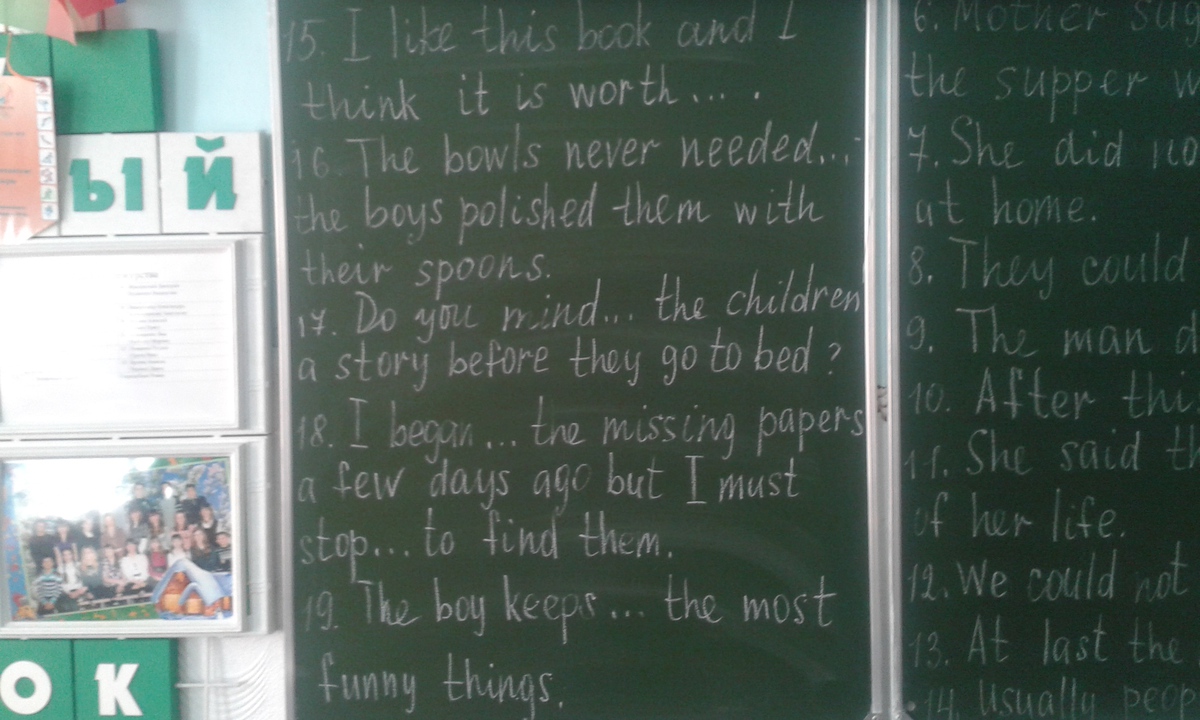 15. I like this book and I
think it is worth... .
16. The bowls never needed...:
the boys polished them with
their spoons.
17. Do you mind... the children
a story before they go to bed?
18. I began... the missing papers
a few days ago but I must
stop... to find them.
19. The boy keeps... the most
funny things.
6. Mother sug
the supper w
7. She did no
at home.
8. They could
9. The man d
10. After thi
11. She said th
of her life.
12. We could not
13. At last the
14. Usually peop
ЫЙ
ОК